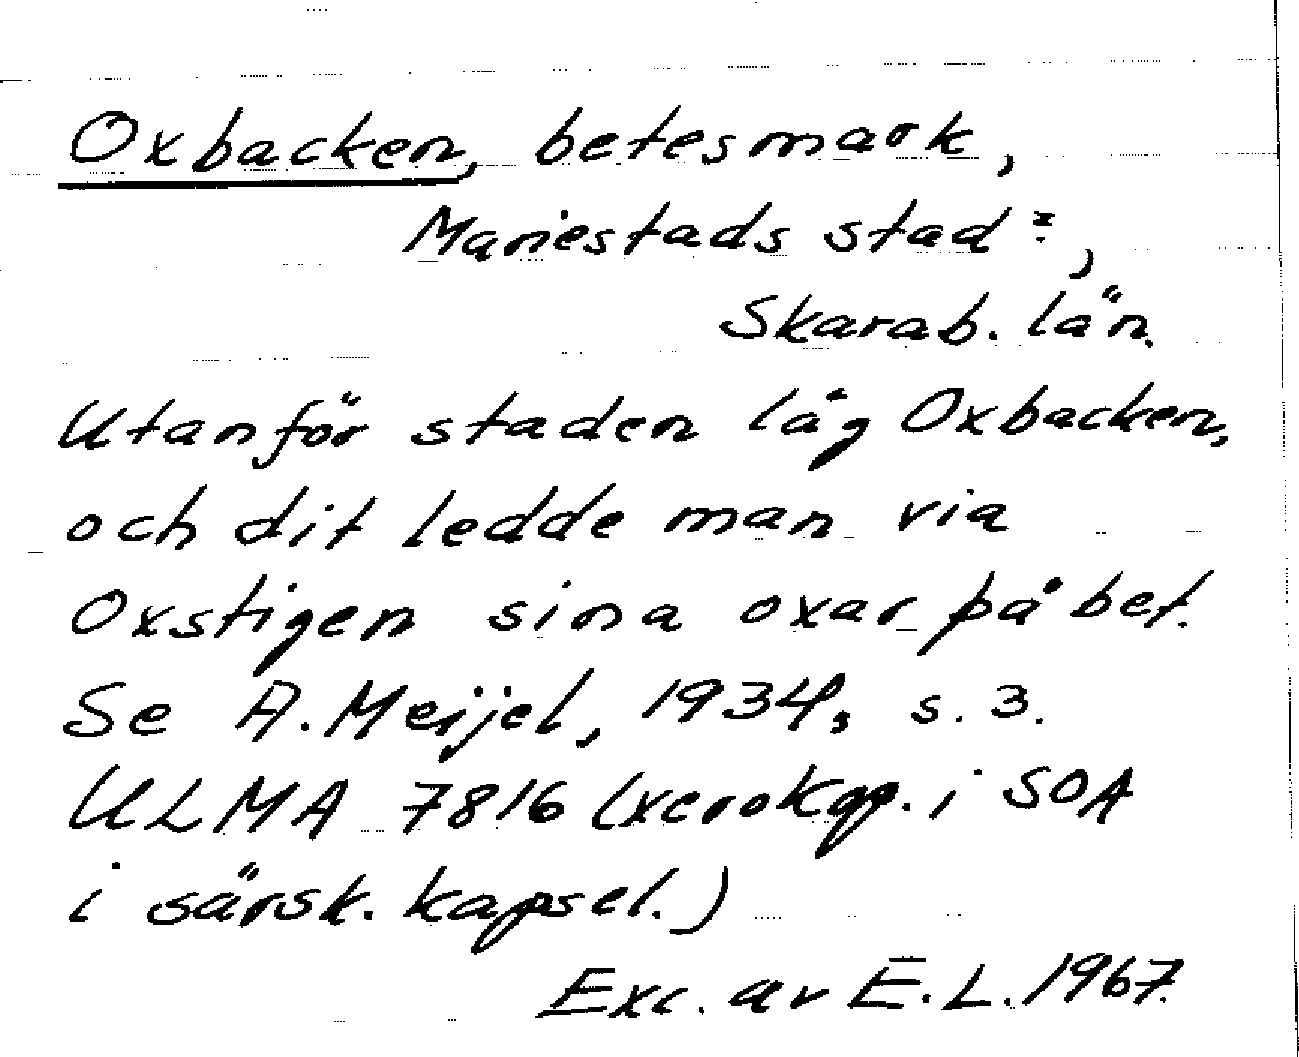 Oxbacken, betesmark,
Mariestads stad:,
Skarab. län.
Utanför staden låg Oxbacken,
och dit ledde man via
Oxstigen sina oxar på bet.
Se A. Meijel, 1934, s. 3.
ULMA 7816 (xerokop. i SOA
i särsk. kapsel.)
Exc. av E. L. 1967.